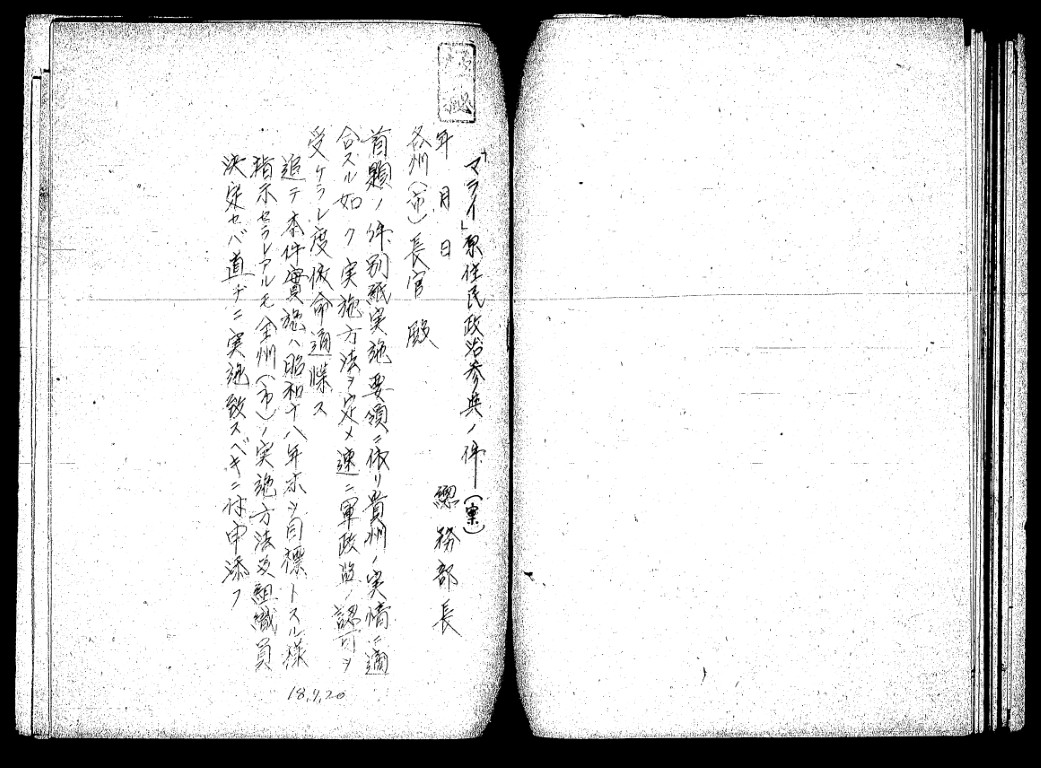 「マライ」原住民政治参与ノ件(案)
年 月 日
総務部長
各州(市)長官殿
首題ノ件別紙実施要領ニ依リ貴州ノ実情ニ適
合スル如ク実施方法ヲ定メ速ニ軍政監ノ認可ヲ
受ケラレ度依命通牒ス
追テ本件實施ハ昭和十八年末ヲ目標トスル様
指示セラレアルモ全州(市)ノ実施方法及組織員
決定セバ直チニ実施致スベキニ付申添フ
18.9.20